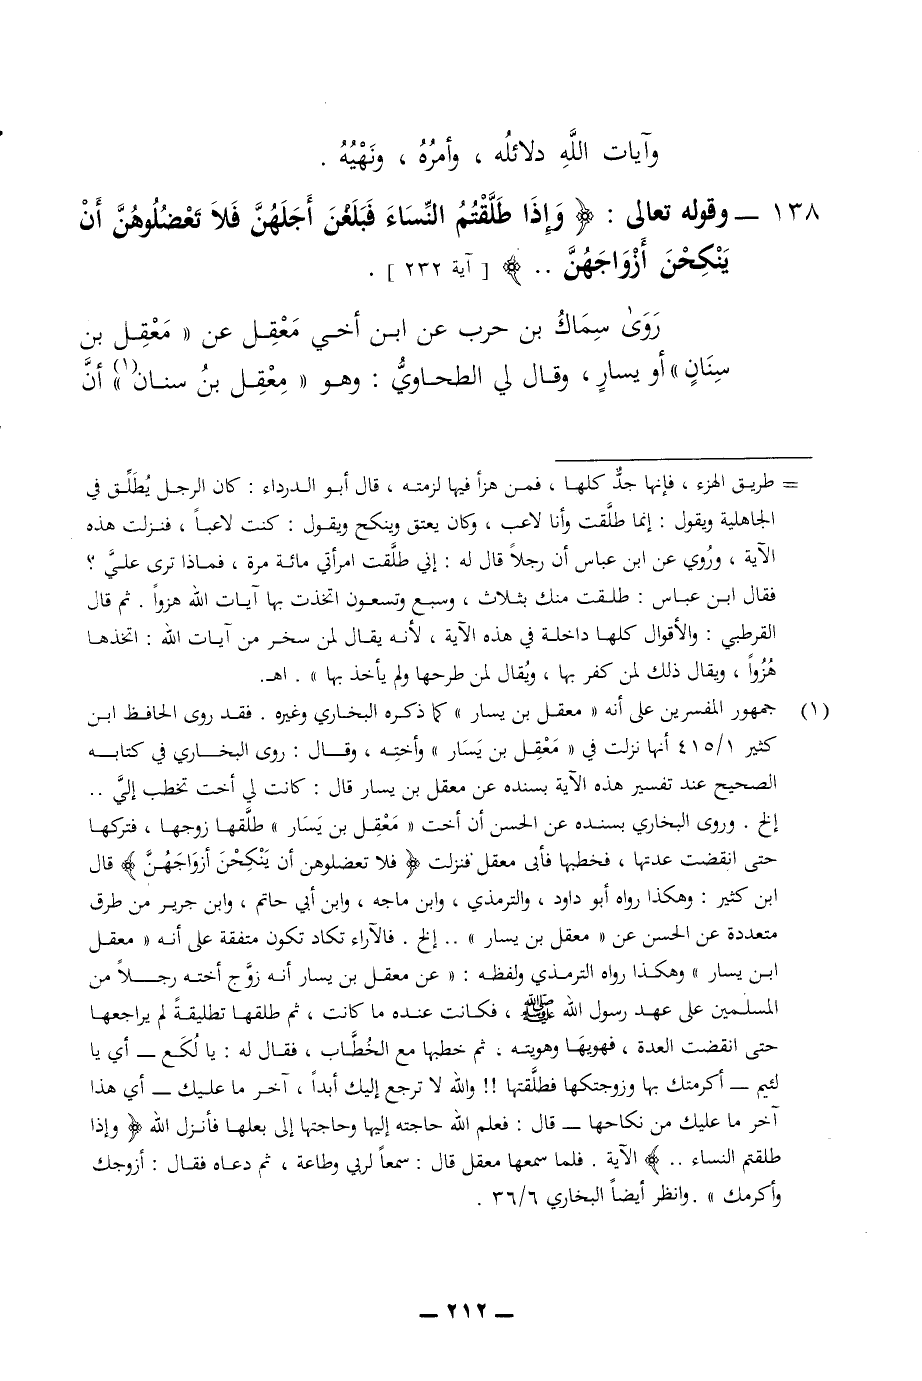 وآيات اللَّهِ دلائلُه ، وأمرُهُ ، ونَهْيُهُ .
١٣٨ ـ وقوله تعالى : ﴿ وَإِذَا طَلَّقْتُمُ النِّسَاءَ فَبَلَغْنَ أَجَلَهُنَّ فَلاَ تَعْضُلُوهُنَّ أَنْ
يَنْكِحْنَ أَزْوَاجَهُنَّ .. ﴾ [ آية ٢٣٢ ] .
رَوَىٰ سِمَاكُ بن حرب عن ابن أخي مَعْقِل عن « مَعْقِل بن
سِنَانٍ » أو يسارٍ ، وقال لي الطحاويُّ : وهو « مِعْقِل بنُ سنان(١) » أنَّ
= طريق الهزء ، فإنها جدٌّ كلها ، فمن هزأ فيها لزمته ، قال أبو الدرداء : كان الرجل يُطَلِّق في
الجاهلية ويقول : إنما طلَّقت وأنا لاعب ، وكان يعتق وينكح ويقول : كنت لاعباً ، فنزلت هذه
الآية ، ورُوي عن ابن عباس أن رجلاً قال له : إني طلَّقت امرأتي مائة مرة ، فماذا ترى عليَّ ؟
فقال ابن عباس : طلقت منك بثلاث ، وسبع وتسعون اتخذت بها آيات الله هزواً . ثم قال
القرطبي : والأقوال كلها داخلة في هذه الآية ، لأنه يقال لمن سخر من آيات الله : اتخذها
هُزُواً ، ويقال ذلك لمن كفر بها ، ويُقال لمن طرحها ولم يأخذ بها » . اهـ.
(١) جمهور المفسرين على أنه « معقل بن يسار » كما ذكره البخاري وغيره . فقد روى الحافظ ابن
كثير ٤١٥/١ أنها نزلت في « مَعْقِل بن يَسَار » وأختِه ، وقال : روى البخاري في كتابه
الصحيح عند تفسير هذه الآية بسنده عن معقل بن يسار قال : كانت لي أخت تخطب إليَّ ..
إلخ . وروى البخاري بسنده عن الحسن أن أخت « مَعْقِل بن يَسَار » طلَّقها زوجها ، فتركها
حتى انقضت عدتها ، فخطبها فأبى معقل فنزلت ﴿ فلا تعضلوهن أن يَنْكِحْنَ أزوَاجَهُنَّ ﴾ قال
ابن كثير : وهكذا رواه أبو داود ، والترمذي ، وابن ماجه ، وابن أبي حاتم ، وابن جرير من طرق
متعددة عن الحسن عن « معقل بن يسار » .. إلخ . فالآراء تكاد تكون متفقة على أنه « معقل
ابن يسار » وهكذا رواه الترمذي ولفظه : « عن معقل بن يسار أنه زوَّج أخته رجلاً من
المسلمين على عهد رسول الله ﷺ ، فكانت عنده ما كانت ، ثم طلقها تطليقةً لم يراجعها
حتى انقضت العدة ، فهويهَا وهويته ، ثم خطبها مع الخُطَّاب ، فقال له : يا لُكَع ـ أي يا
لئيم ـ أكرمتك بها وزوجتكها فطلَّقتها !! والله لا ترجع إليك أبداً ، آخر ما عليك ـ أي هذا
آخر ما عليك من نكاحها ـ قال : فعلم الله حاجته إليها وحاجتها إلى بعلها فأنزل الله ﴿ وإذا
طلقتم النساء .. ﴾ الآية . فلما سمعها معقل قال : سمعاً لربي وطاعة ، ثم دعاه فقال : أزوجك
وأكرمك » . وانظر أيضاً البخاري ٣٦/٦ .
ـ ٢١٢ ـ